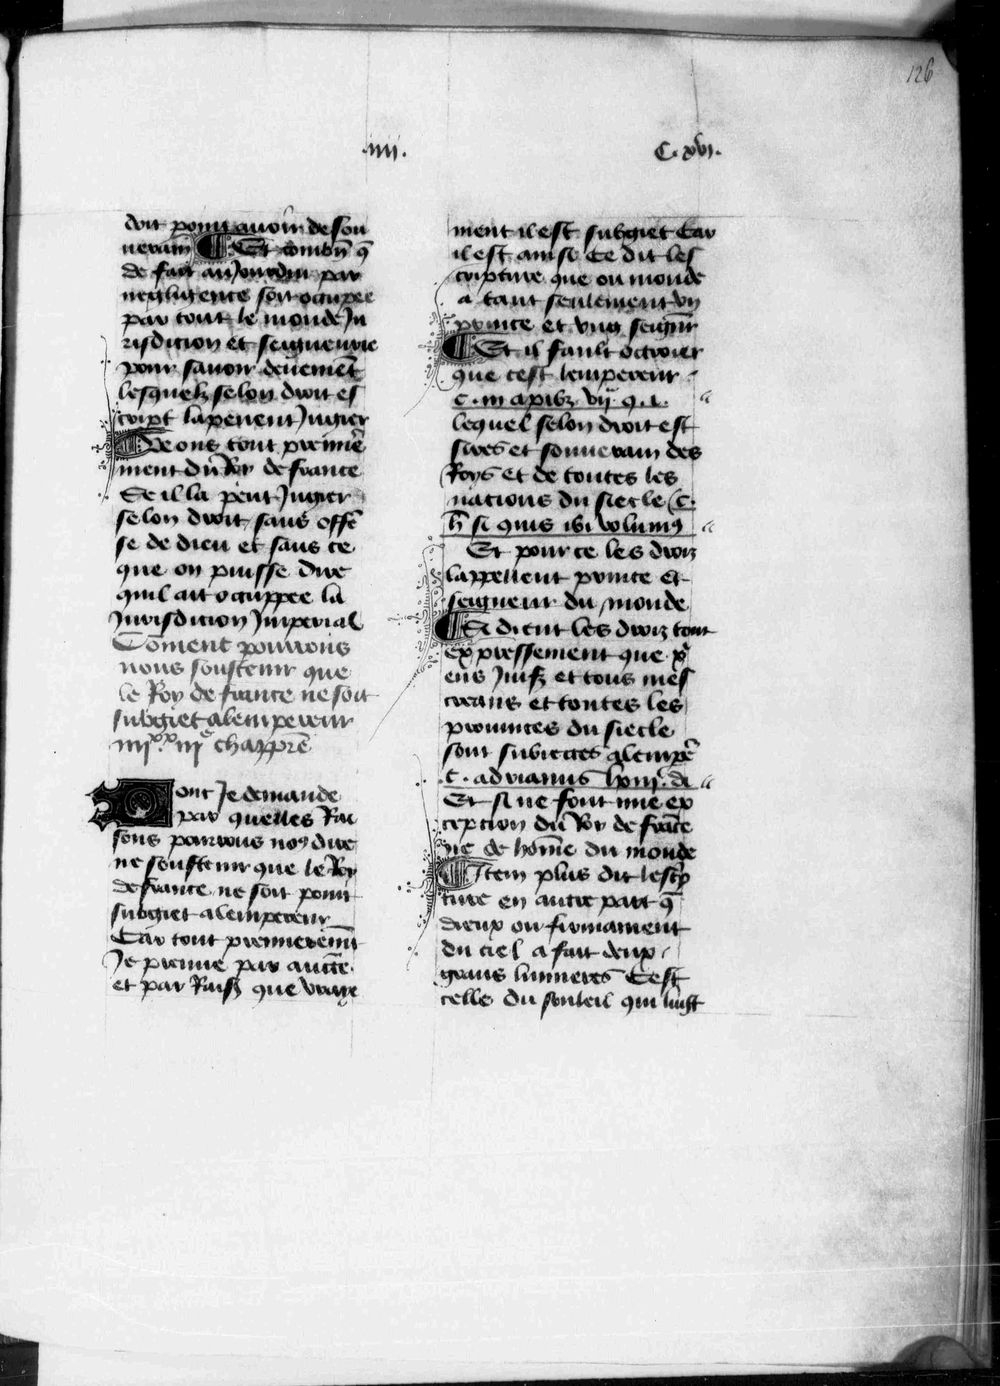 126
.iiii.
C. xvi.
doit point avoir de sou
verain ¶ Et combn̄ q̄
de fait aujourdui par
negligence soit ocupee
par tout le monde Ju
risdicion et seigneurie
pour savoir deuement̄
lesquelz selon droit es
cript la peuent Jugier
¶ Or ons tout premie
ment du Roy de france
Se il la peut Jugier
selon droit sans offē
se de dieu et sans ce
que on puisse dire
quil ait ocuppee la
Jurisdicion Jmperial
Coment pourrons
nous soustenir que
le Roy de france ne soit
subgiet alempereur
iiiixx iiie chappre
Dont Je demande
par quelles Rai
sons pourrons noꝯ dire
ne soustenir que le Roy
de france ne soit point
subgiet alempereur
Car tout premieremt̄
Je preuue par aucte.
et par Raisō que vraye
ment il est subgiet Car
il est ainse Ce dit les
cripture que ou monde
a tant seulement vn
prince et vng seignr̄
¶ Et il fault octroier
que cest lempereur
C. in apibꝫ vii. q. i.
lequel selon droit est
sires et souuerain des
Roys et de toutes les
nacions du siecle C.
h̄ si quis ibi volumꝯ
Et pour ce les droiz
lappellent prince et
seigneur du monde
¶ Si dient les droiz tout
expressement que xp̄i
ens Juifz et tous mes
creans et toutes les
prouinces du siecle
sont subiectes alempē
C. adrianus lviii. di
Et si ne font mie ex
cepcion du Roy de frāce
ne de hōme du monde
¶ Item plus dit lescrip
ture en autre part q̄
dieux ou firmament
du ciel a fait deux
grans lumieres Cest
celle du souleil qui luist